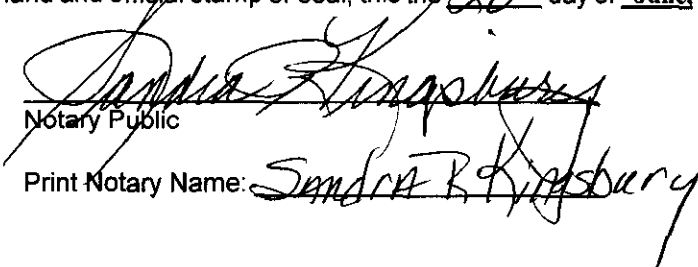 hand and official stamp or seal, this the 20 day of June,
Sandra R Kingsbury
Notary Public
Print Notary Name: Sandra R Kingsbury